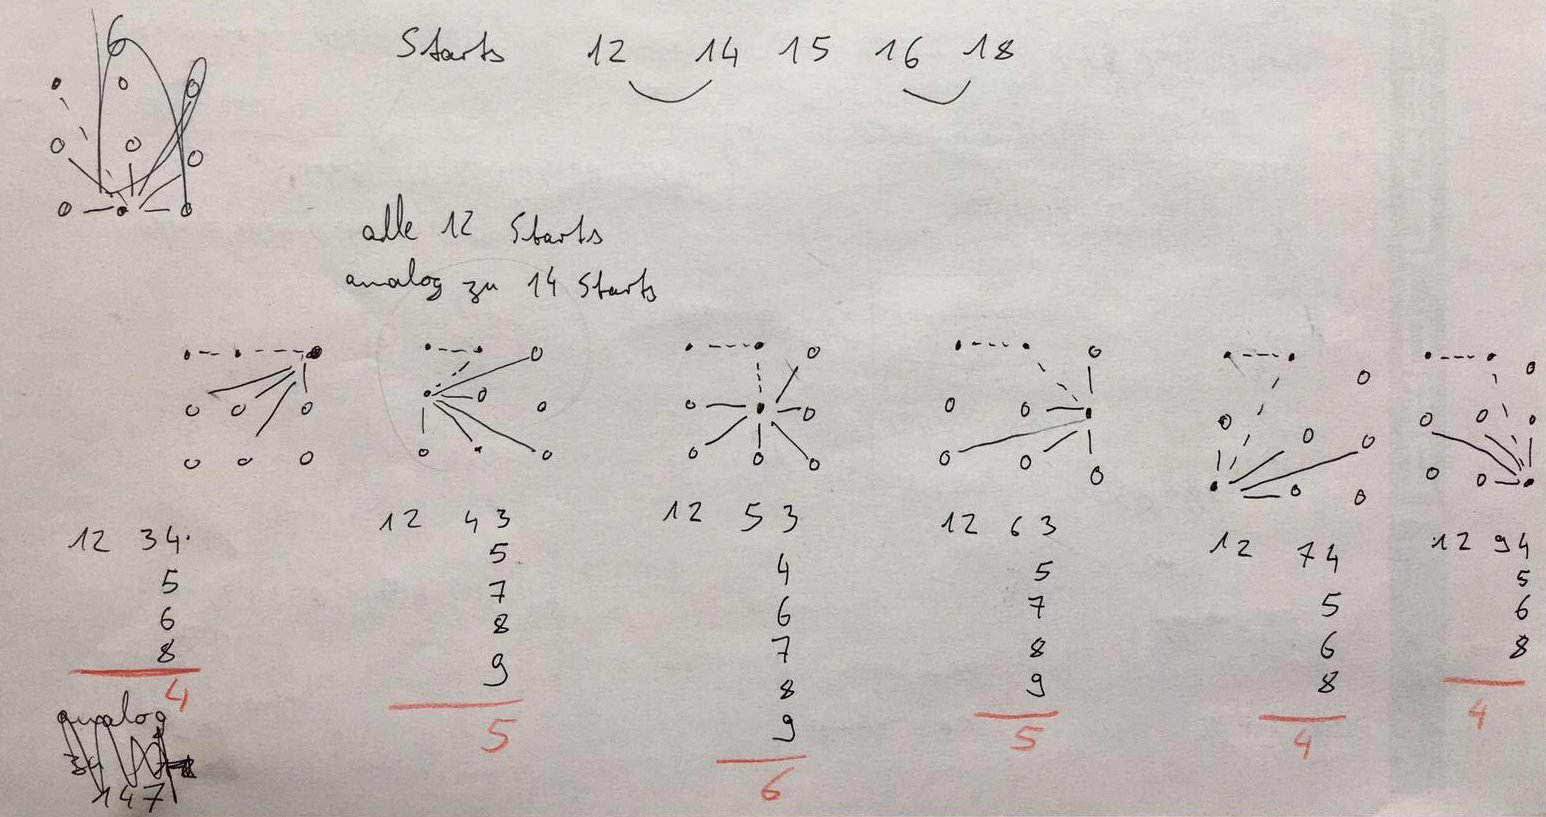 6
Starts 12 14 15 16 18
alle 12 Starts
analog zu 14 Starts
12 34.
5
6
8
4
analog
147
12 43
5
7
8
9
5
12 53
4
6
7
8
9
6
12 63
5
7
8
9
5
12 74
5
6
8
4
12 94
5
6
8
4